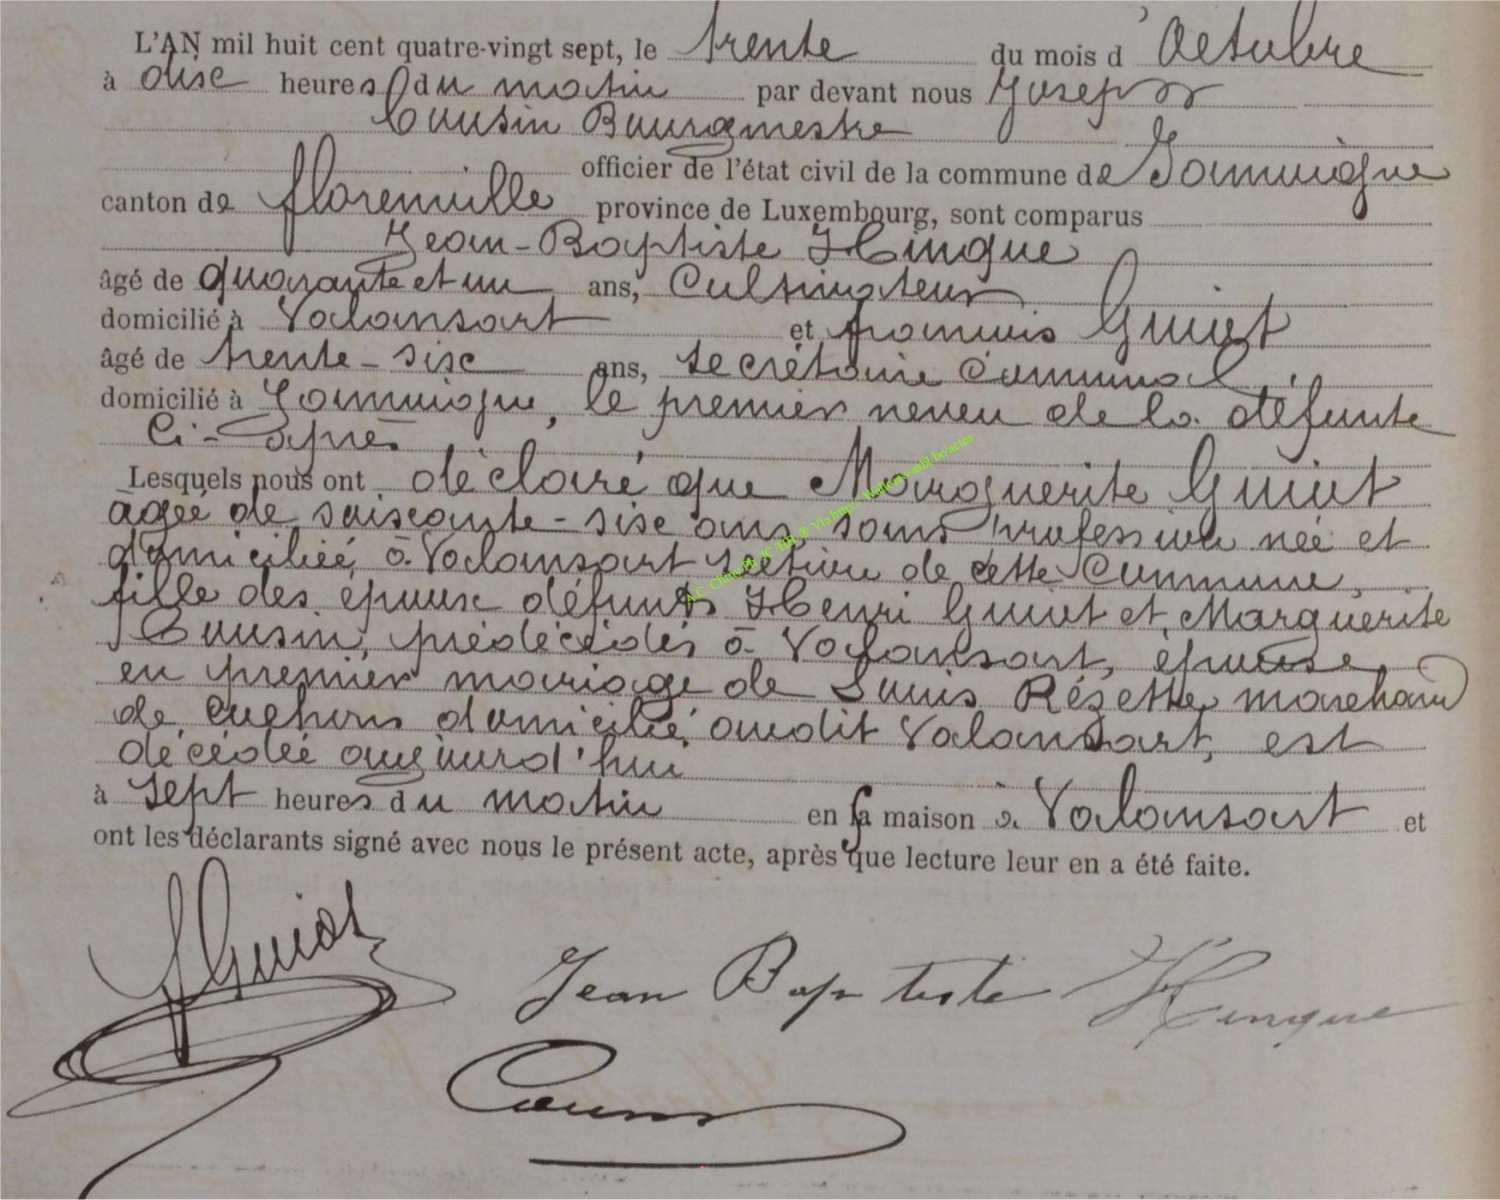 L'AN mil huit cent quatre-vingt sept, le trente du mois d'Octobre
à dix heures du matin par devant nous Joseph
Cousin Bourgmestre
officier de l'état civil de la commune de Jamoigne
canton de florenville province de Luxembourg, sont comparus
Jean-Baptiste Hinque
âgé de quarante et un ans, Cultivateur
domicilié à Valansart et francois Guiot
âgé de trente-six ans, secrétaire Communal,
domicilié à Jamoigne, le premier neveu de la défunte
Ci-après
Lesquels nous ont déclaré que Marguerite Guiot
agée de soixante-six ans, sans profession née et
domiciliée à Valansart section de cette Commune,
fille des époux défunts Henri Guiot et Marguerite
Cousin, prédécédés à Valansart, épouse
en premier mariage de Louis Rézette marchand
de cochons domicilié audit Valansart, est
décédée aujourd'hui
à sept heures du matin en sa maison à Valansart et
ont les déclarants signé avec nous le présent acte, après que lecture leur en a été faite.
Guiot
Jean Baptiste Hinque
Cousin